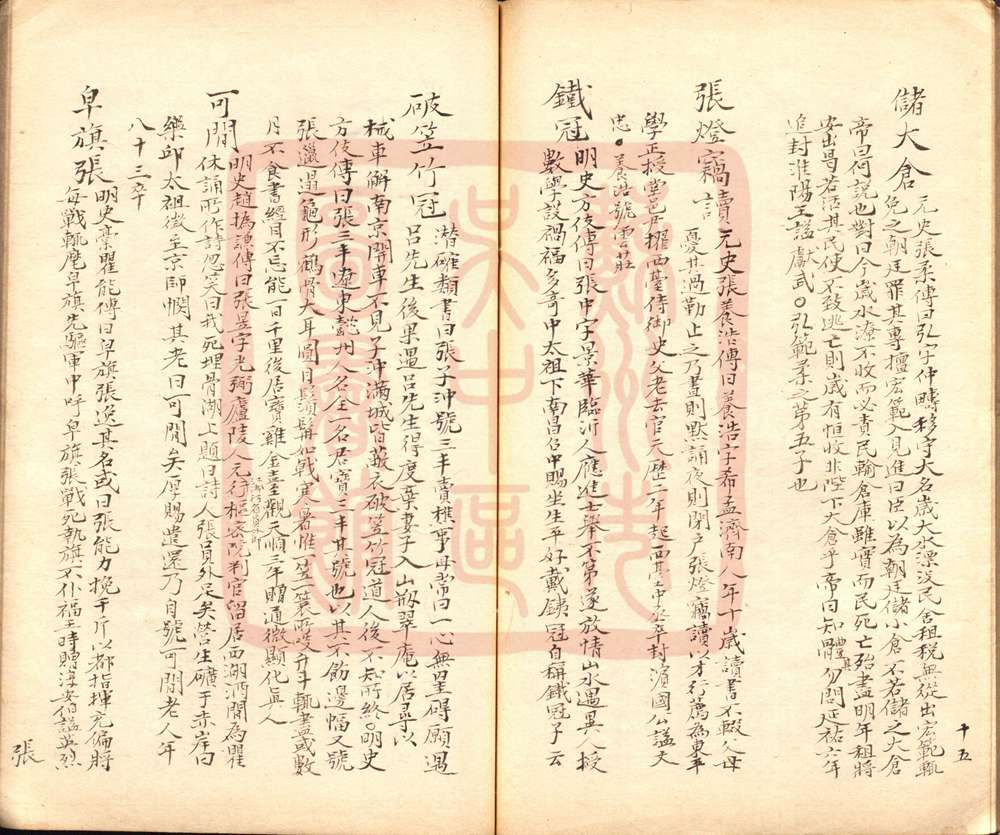 儲大倉 元史張柔傳曰弘字仲疇移守大名歲大水漂沒民舍租稅無從出宏範輒
免之朝廷罪其專擅宏範入見進曰臣以為朝廷儲小倉不若儲之大倉
帝曰何說也對曰今歲水潦不收而必責民輸倉庫雖實而民死亡殆盡明年租將
安出曷若活其民使不致逃亡則歲有恒收非陛下大倉乎帝曰知體其勿問延祐六年
追封淮陽王謚獻武○弘範柔之第五子也
張燈竊讀 元史張養浩傳曰養浩字希孟濟南人年十歲讀書不輟父母
憂其過勤止之乃晝則默誦夜則閉戶張燈竊讀以才行薦為東平
學正授堂邑尹擢西臺侍御史父老去官天歷二年起西臺中丞卒封濱國公謚文
忠○養浩號雲莊
鐵冠 明史方伎傳曰張中字景華臨沂人應進士舉不第遂放情山水遇異人授
數學談禍福多奇中太祖下南昌召中賜坐生平好戴鐵冠自稱鐵冠子云
破笠竹冠 潛確類書曰張子沖號三丰賣樵事母常曰一心無罣碍願遇
呂先生後果遇呂先生得度棄妻子入山嚴翠庵以居尋以
械車解南京開車不見子沖滿城皆蔽衣破笠竹冠道人後不知所終○明史
方伎傳曰張三丰遼東懿州人名全一名君寶三丰其號也以其不飾邊幅又號
張邋遢龜形鶴骨大耳圓目鬚髯如戟寒暑惟一笠蓑所啖升斗輒盡或數
月不食書經目不忘能一日千里後居寶雞金臺觀天順三年贈通微顯化真人
可閒 明史趙撝謙傳曰張昱字光弼廬陵人元行樞密院判官留居西湖酒閒為瞿
休誦所作詩忽笑曰我死埋骨湖上題曰詩人張員外足矣營生礦于赤岸曰
樂邱太祖徵至京師憫其老曰可閒矣厚賜遣還乃自號可閒老人年
八十三卒
皁旗張 明史瞿能傳曰皁旗張逸其名或曰張能力挽千斤以都指揮充偏將
每戰輒麾皁旗先驅軍中呼皁旗張戰死執旗不仆福王時贈淳安伯謚英烈
十五
張